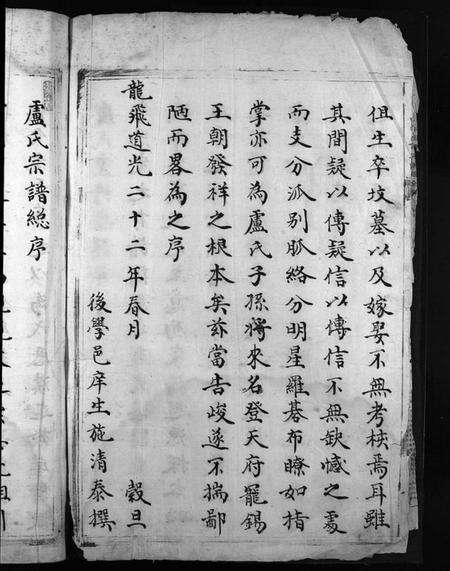 但生卒坟墓以及嫁娶不無考核焉耳雖
其間疑以傳疑信以傳信不無缺憾之處
而支分派別脈絡分明星羅碁布瞭如指
掌亦可為盧氏子孫將來名登天府寵錫
王朝發祥之根本矣茲當告竣遂不揣鄙
陋而畧為之序
龍飛道光二十二年春月 穀旦
後學邑庠生施清泰撰
盧氏宗譜総序